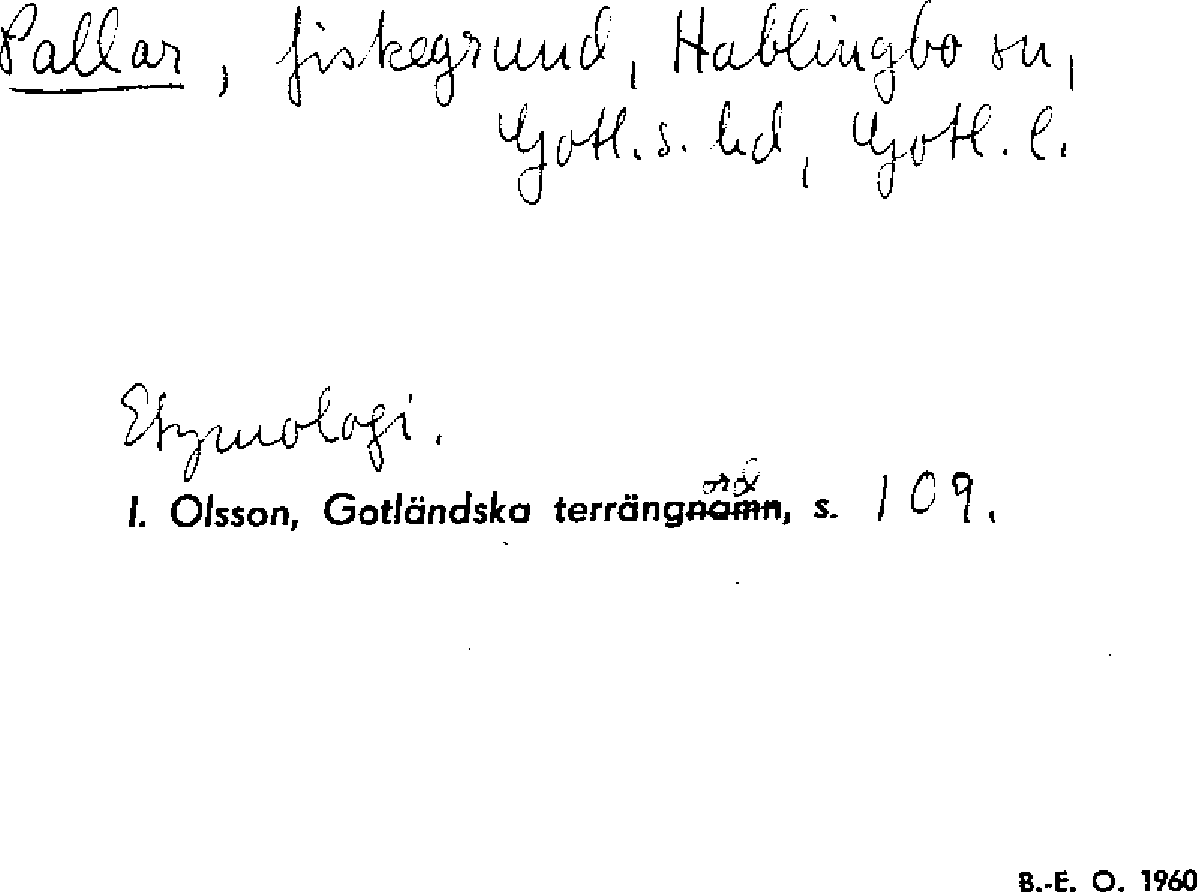 Pallar, fiskegrund, Hablingbo sn,
Gotl. s. hd, Gotl. l.
Etymologi.
ord
I. Olsson, Gotländska terrängnamn, s. 109.
B.-E. O. 1960